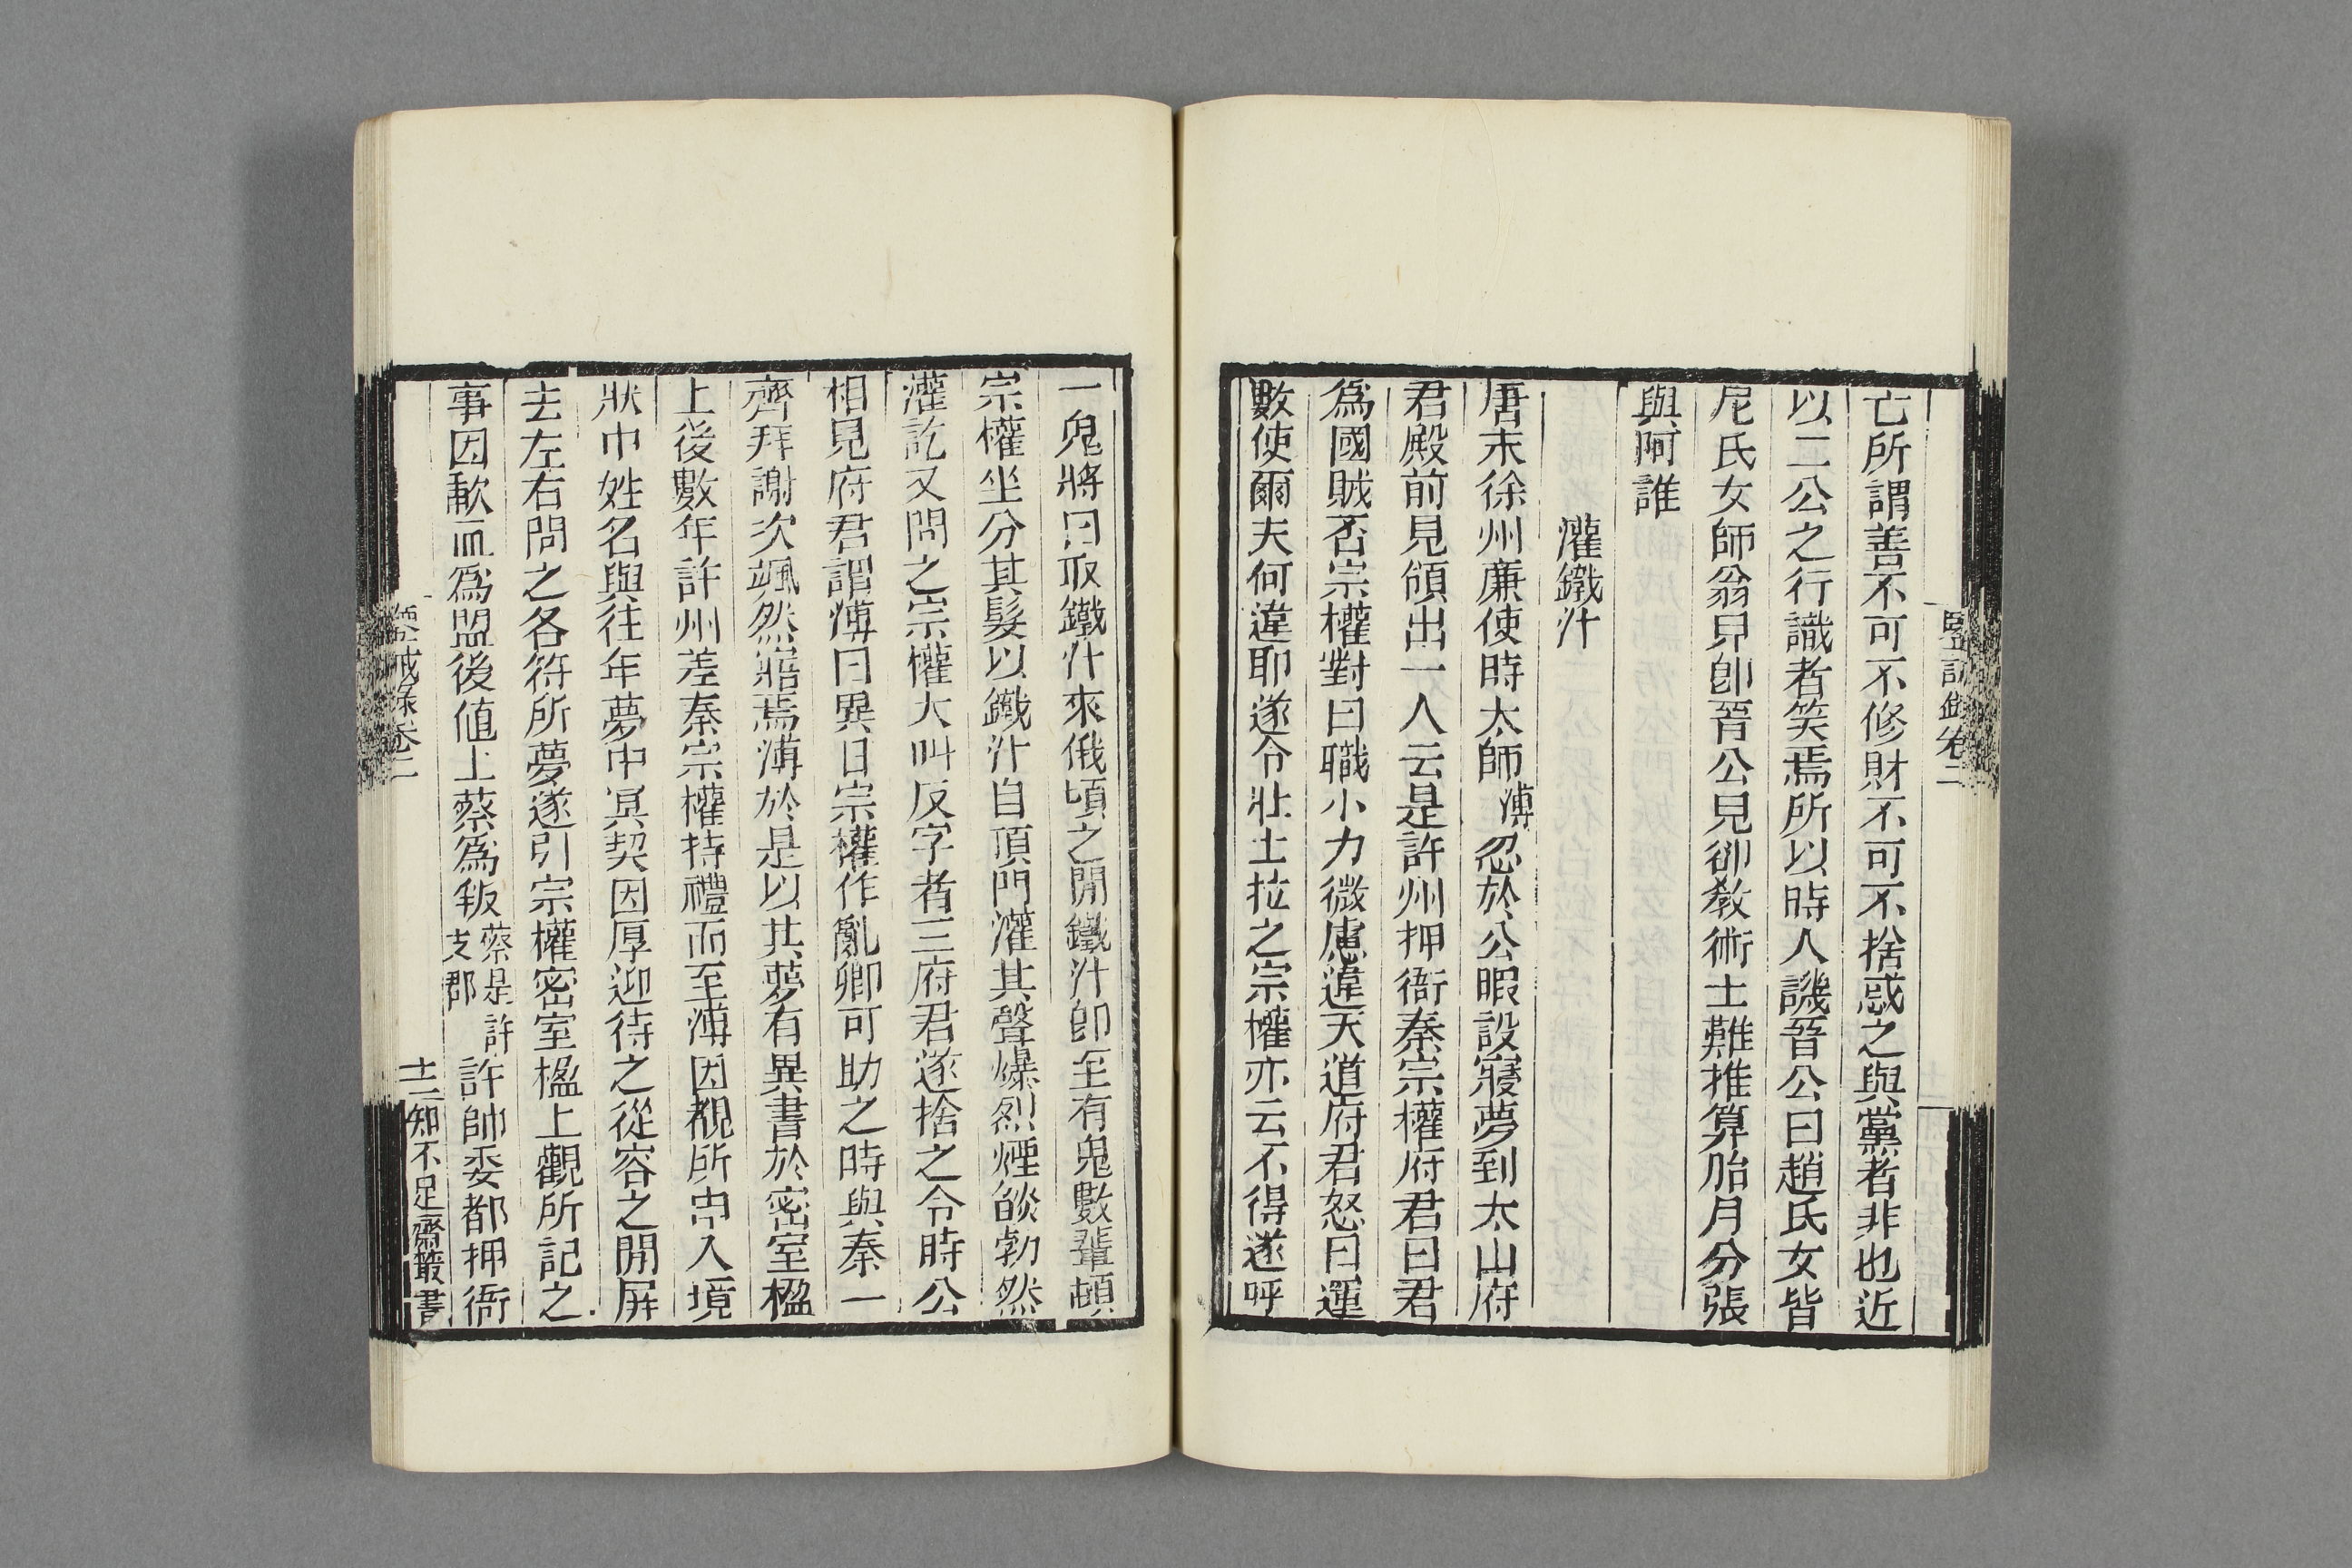 亡所謂善不可不修財不可不捨惑之與黨者非也近
以二公之行識者笑焉所以時人譏晉公曰趙氏女皆
尼氏女師翁兒卽晉公見卻敎術士難推算胎月分張
與阿誰
灌鐵汁
唐末徐州廉使時太師溥忍於公暇設寢夢到太山府
君殿前見領出一人云是許州押衙秦宗權府君曰君
爲國賊否宗權對曰職小力微慮違天道府君怒曰運
數使爾夫何違耶遂令壯士拉之宗權亦云不得遂呼
一鬼將曰取鐵汁來俄頃之閒鐵汁卽至有鬼數輩頓
宗權坐分其髮以鐵汁自頂門灌其聲爆烈煙燄勃然
灌訖又問之宗權大叫反字者三府君遂捨之令時公
相見府君謂溥曰異日宗權作亂卿可助之時與秦一
齊拜謝次颯然寤焉溥於是以其夢有異書於密室楹
上後數年許州差秦宗權持禮而至溥因覩所申入境
狀中姓名與往年夢中冥契因厚迎待之從容之閒屏
去左右問之各符所夢遂引宗權密室楹上觀所記之
事因歃血爲盟後値上蔡爲叛蔡是許支郡許帥委都押衙
鑒誡錄卷二
十二知不足齋叢書